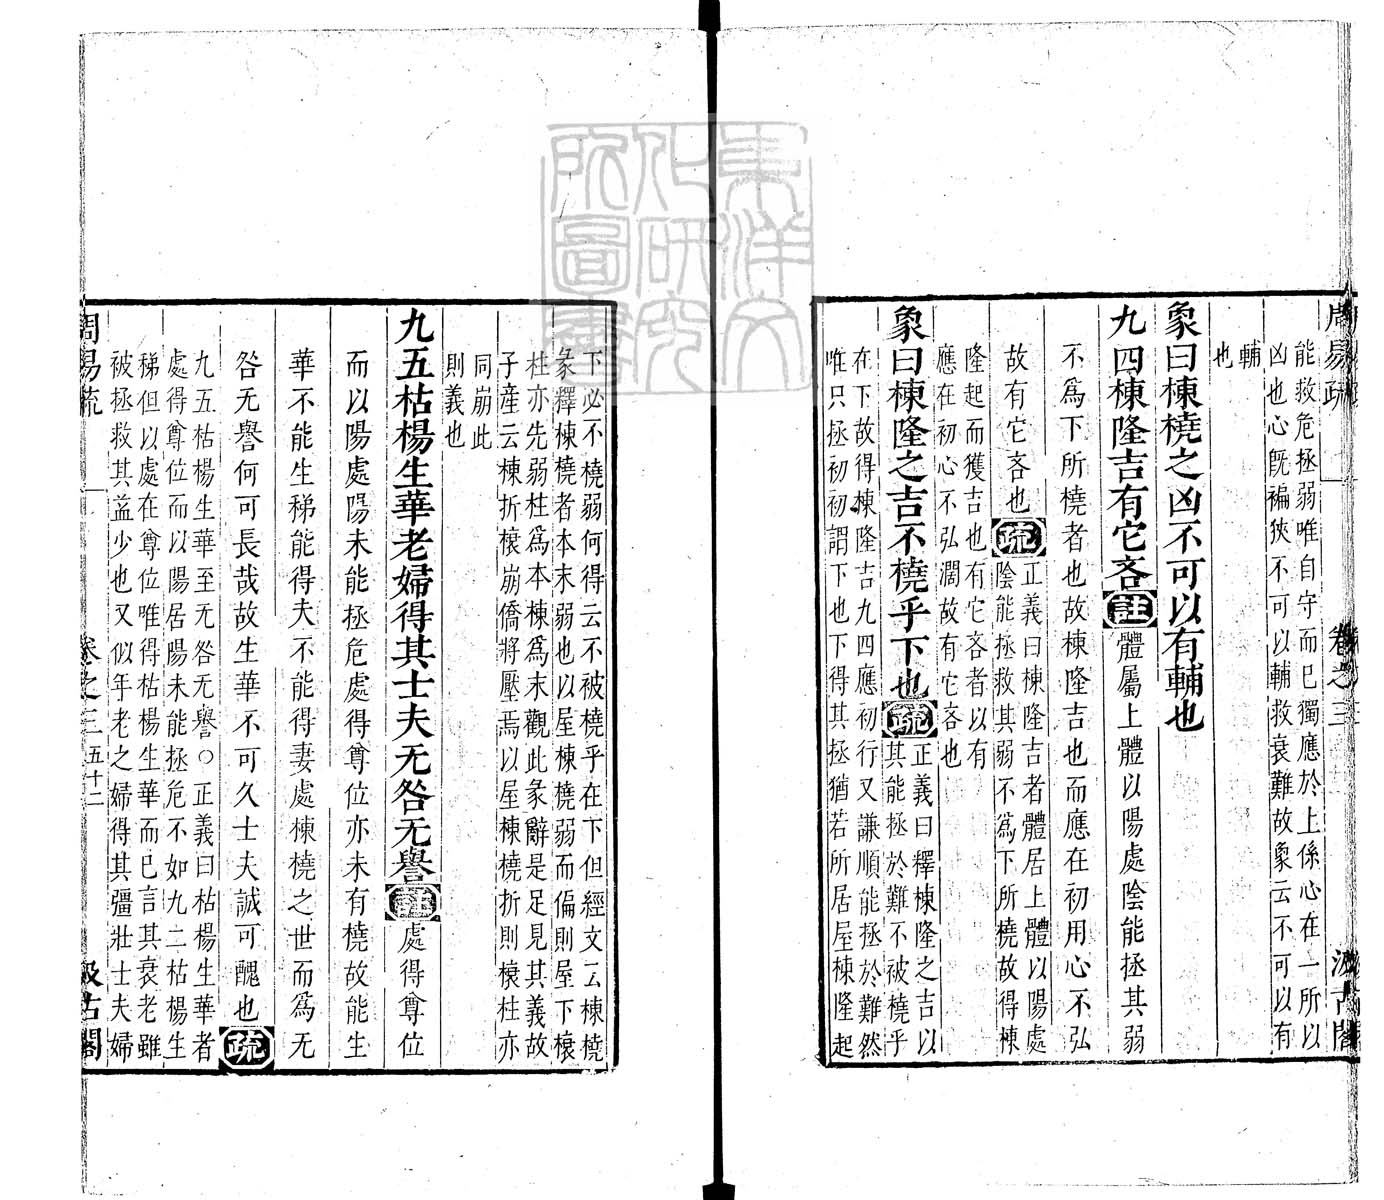 周易疏 卷之三 汲古閣
能救危拯弱唯自守而已獨應於上係心在一所以
凶也心旣褊狹不可以輔救衰難故象云不可以有
輔
也
象曰棟橈之凶不可以有輔也
九四棟隆吉有它吝註體屬上體以陽處陰能拯其弱
不爲下所橈者也故棟隆吉也而應在初用心不弘
故有它吝也疏正義曰棟隆吉者體居上體以陽處
陰能拯救其弱不爲下所橈故得棟
隆起而獲吉也有它吝者以有
應在初心不弘濶故有它吝也
象曰棟隆之吉不橈乎下也疏正義曰釋棟隆之吉以
其能拯於難不被橈乎
在下故得棟隆吉九四應初行又謙順能拯於難然
唯只拯初初謂下也下得其拯猶若所居屋棟隆起
下必不橈弱何得云不被橈乎在下但經文云棟橈
彖釋棟橈者本末弱也以屋棟橈弱而偏則屋下榱
柱亦先弱柱爲本棟爲末觀此彖辭是足見其義故
子産云棟折榱崩僑將壓焉以屋棟橈折則榱柱亦
同崩此
則義也
九五枯楊生華老婦得其士夫无咎无譽註處得尊位
而以陽處陽未能拯危處得尊位亦未有橈故能生
華不能生稊能得夫不能得妻處棟橈之世而爲无
咎无譽何可長哉故生華不可久士夫誠可醜也疏
九五枯楊生華至无咎无譽○正義曰枯楊生華者
處得尊位而以陽居陽未能拯危不如九二枯楊生
稊但以處在尊位唯得枯楊生華而已言其衰老雖
被拯救其益少也又似年老之婦得其彊壯士夫婦
周易疏 卷之三 五十二 汲古閣
東洋文
化研究
所圖書